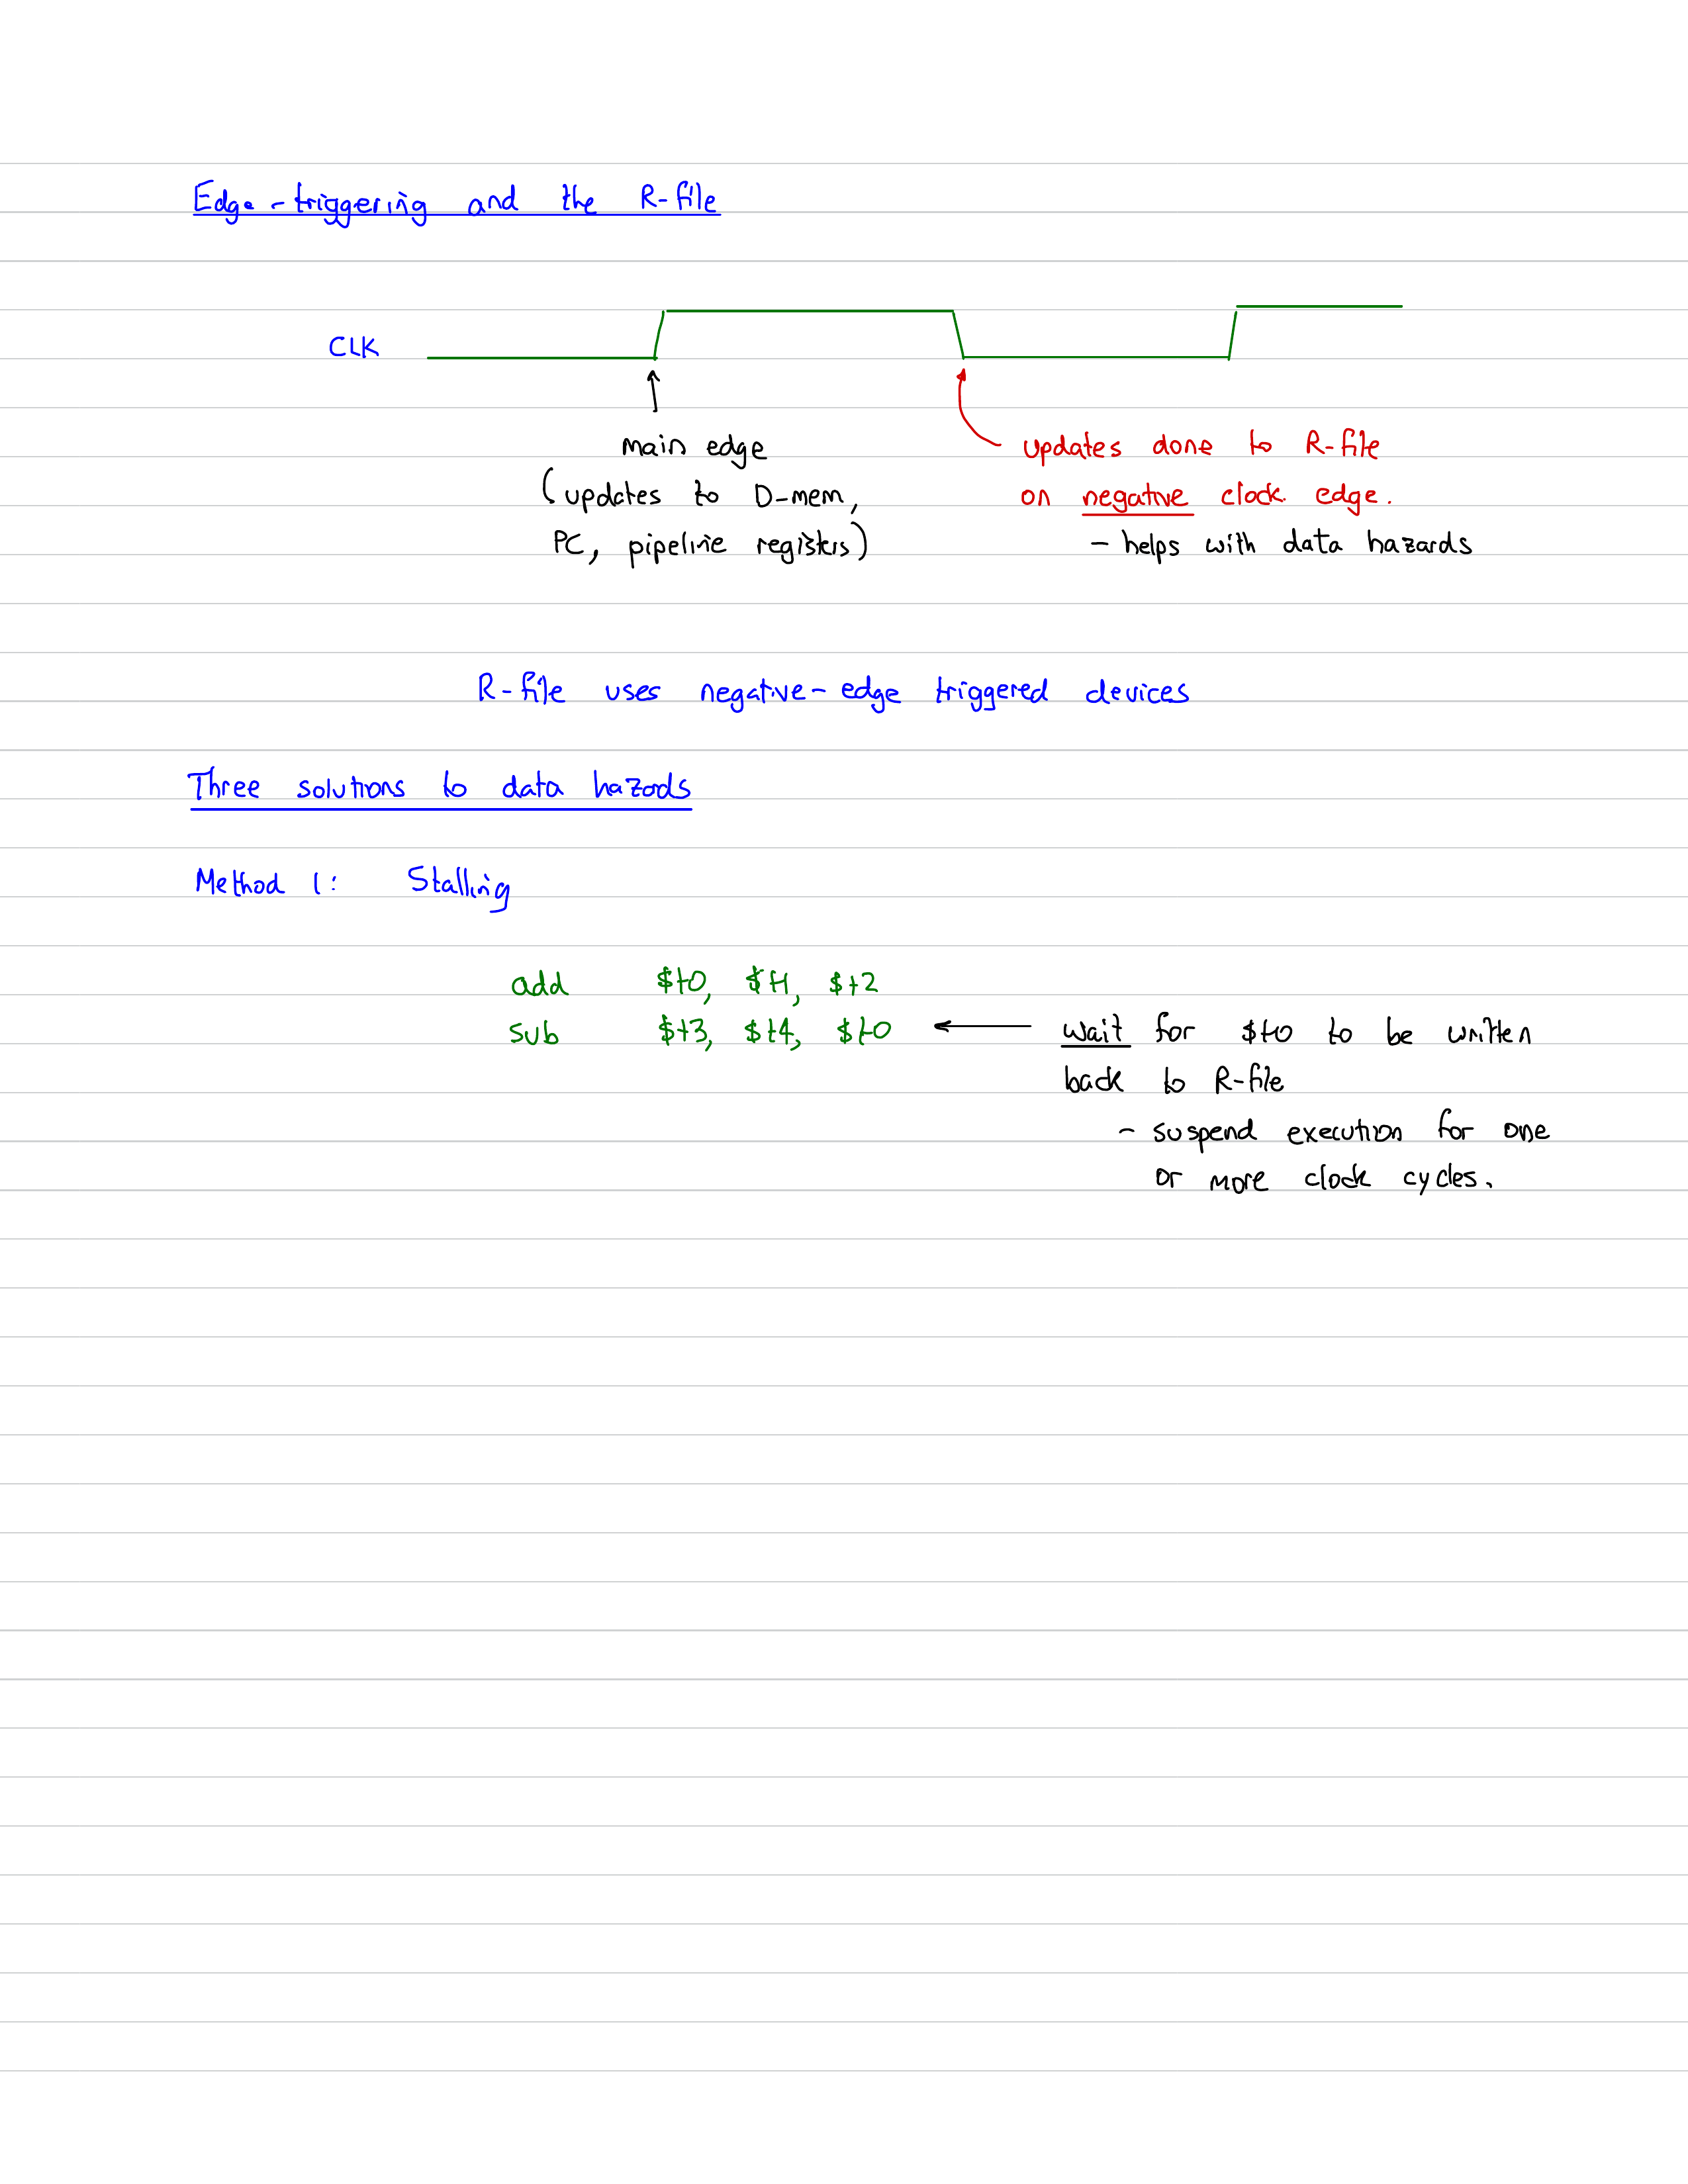 Edge-triggering and the R-file
CLK
main edge
(updates to D-mem,
PC, pipeline registers)
updates done to R-file
on negative clock edge.
- helps with data hazards
R-file uses negative-edge triggered devices
Three solutions to data hazards
Method 1: Stalling
add $t0, $t1, $t2
sub $t3, $t4, $t0
wait for $t0 to be written
back to R-file
- suspend execution for one
or more clock cycles.